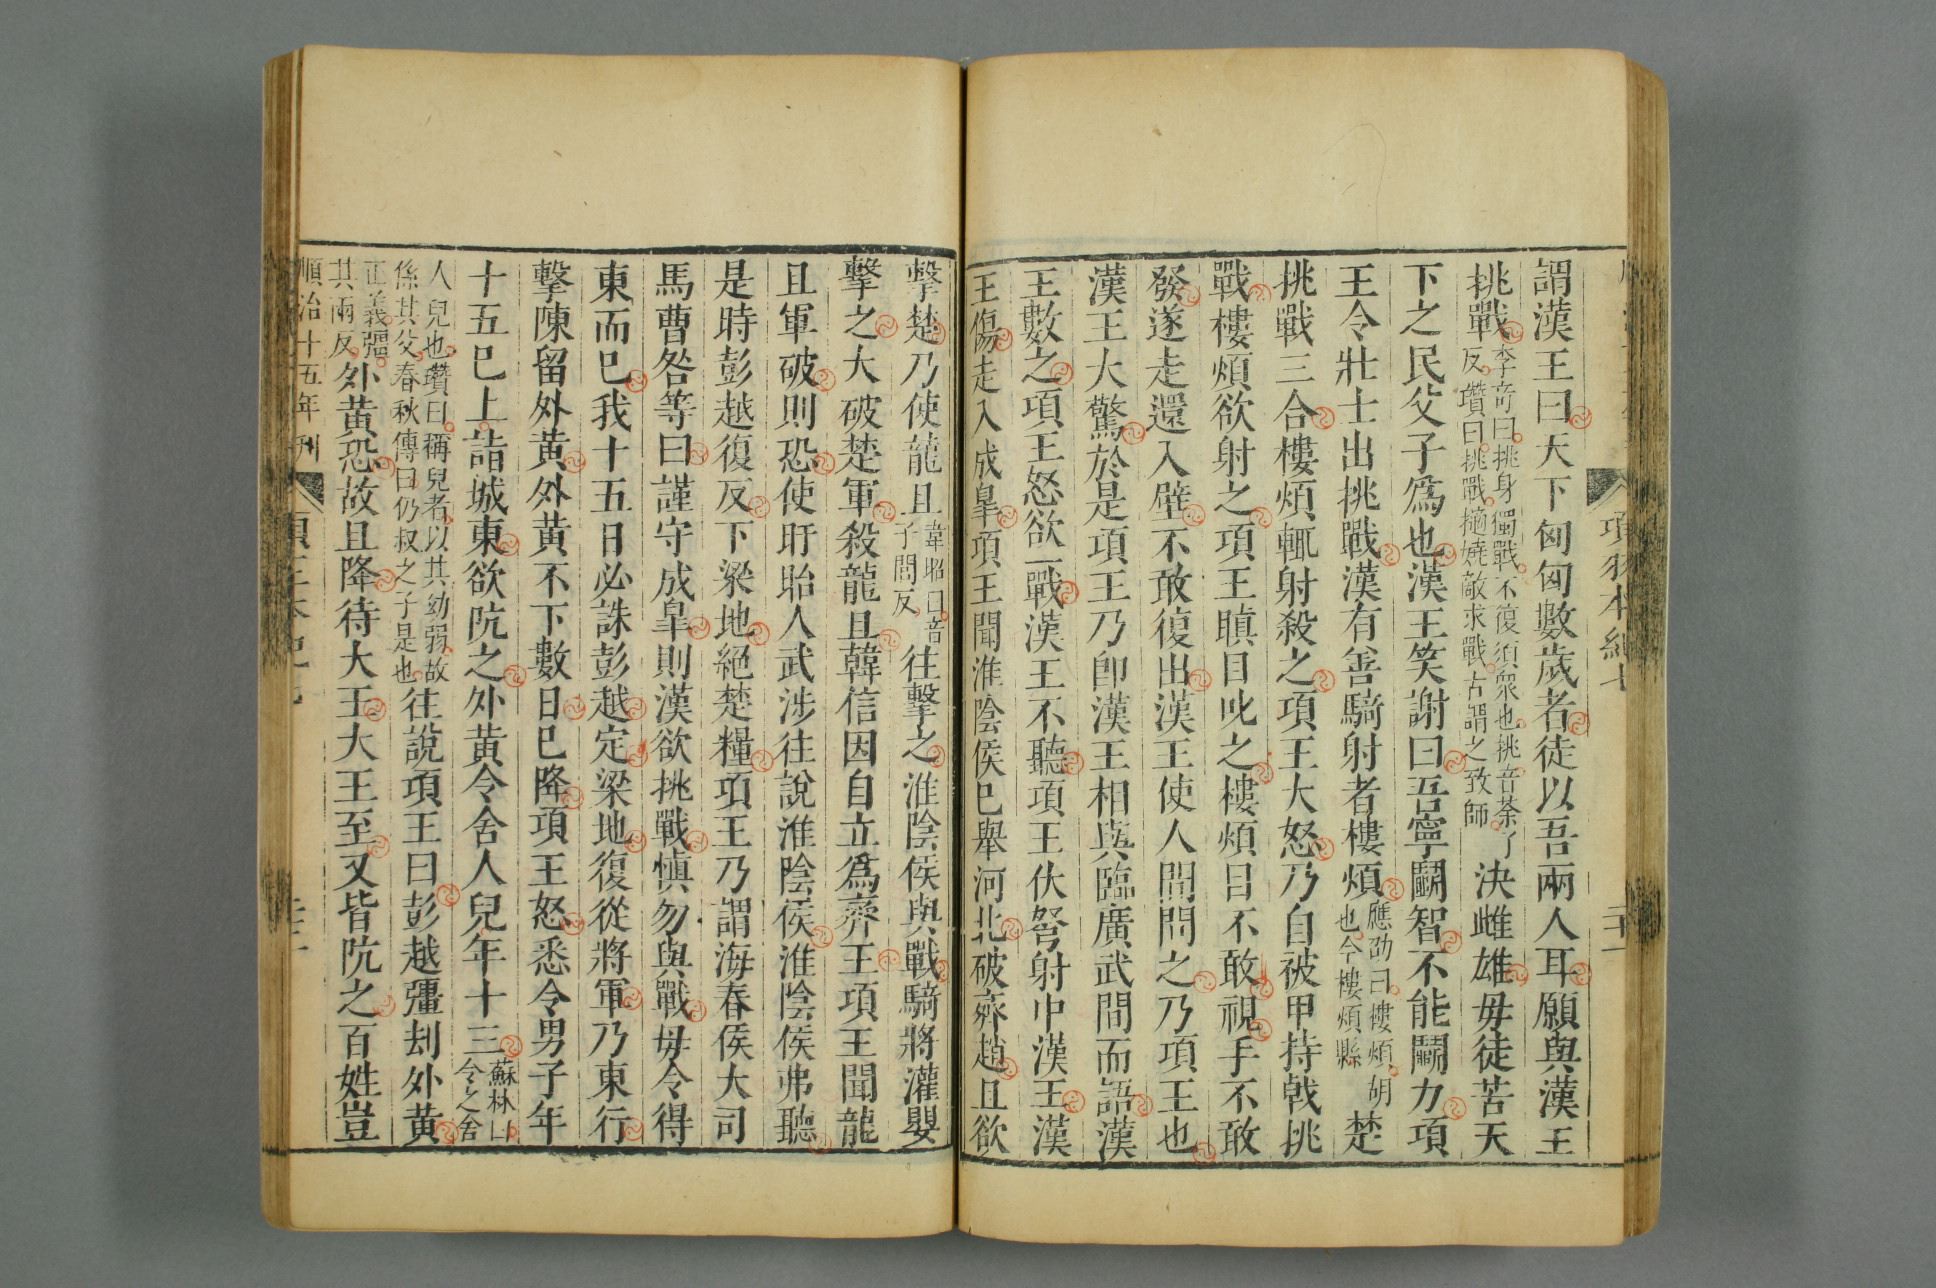 項羽本紀七
謂漢王曰天下匈匈數歲者徒以吾兩人耳願與漢王
挑戰李奇曰挑身獨戰不復須衆也挑音荼了反瓚曰挑戰擿嬈敵求戰古謂之致師決雌雄毋徒苦天
下之民父子爲也漢王笑謝曰吾寧鬭智不能鬭力項
王令壯士出挑戰漢有善騎射者樓煩應劭曰樓煩胡也今樓煩縣楚
挑戰三合樓煩輒射殺之項王大怒乃自被甲持戟挑
戰樓煩欲射之項王瞋目叱之樓煩目不敢視手不敢
發遂走還入壁不敢復出漢王使人間問之乃項王也
漢王大驚於是項王乃卽漢王相與臨廣武間而語漢
王數之項王怒欲一戰漢王不聽項王伏弩射中漢王漢
王傷走入成臯項王聞淮陰侯已舉河北破齊趙且欲
擊楚乃使龍且韋昭曰音子閭反往擊之淮陰侯與戰騎將灌嬰
擊之大破楚軍殺龍且韓信因自立爲齊王項王聞龍
且軍破則恐使盱眙人武涉往說淮陰侯淮陰侯弗聽
是時彭越復反下梁地絕楚糧項王乃謂海春侯大司
馬曹咎等曰謹守成臯則漢欲挑戰愼勿與戰毋令得
東而已我十五日必誅彭越定梁地復從將軍乃東行
擊陳留外黃外黃不下數日已降項王怒悉令男子年
十五已上詣城東欲阬之外黃令舍人兒年十三蘇林曰令之舍
人兒也瓚曰稱兒者以其幼弱故係其父春秋傳曰仍叔之子是也往說項王曰彭越彊刦外黃
正義彊其兩反外黃恐故且降待大王大王至又皆阬之百姓豈
順治十五年刊